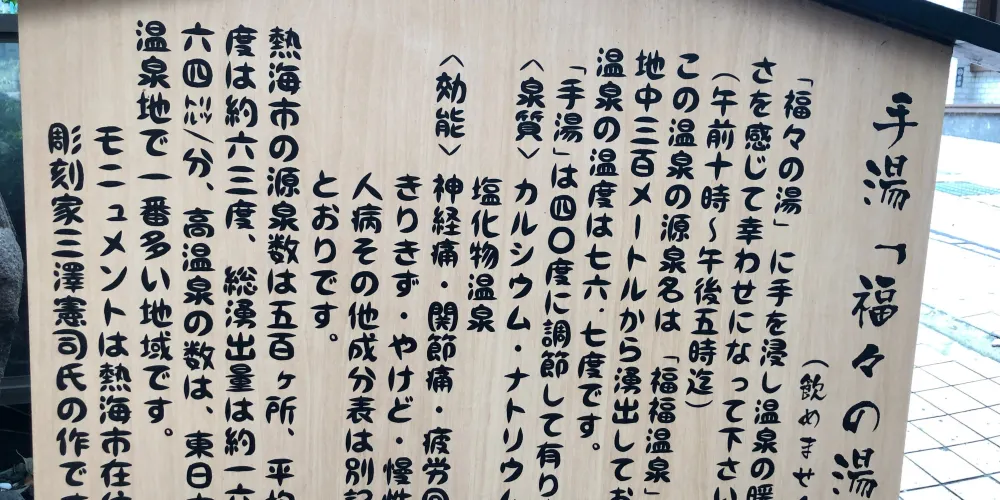 手湯「福々の湯
(飲めませ
「福々の湯」に手を浸し温泉の暖
さを感じて幸わせになって下さい
(午前十時~午後五時迄)
この温泉の源泉名は「福福温泉」
地中三百メートルから湧出してお
温泉の温度は七六.七度です。
「手湯」は四〇度に調節して有り
〈泉質〉カルシウム・ナトリウム
塩化物温泉
〈効能〉神経痛・関節痛・疲労回
きりきず・やけど・慢性
人病その他成分表は別記
とおりです。
熱海市の源泉数は五百ヶ所、平均
度は約六三度、総湧出量は約一六
六四㍑/分、高温泉の数は、東日
温泉地で一番多い地域です。
モニュメントは熱海市在住
彫刻家三澤憲司氏の作です